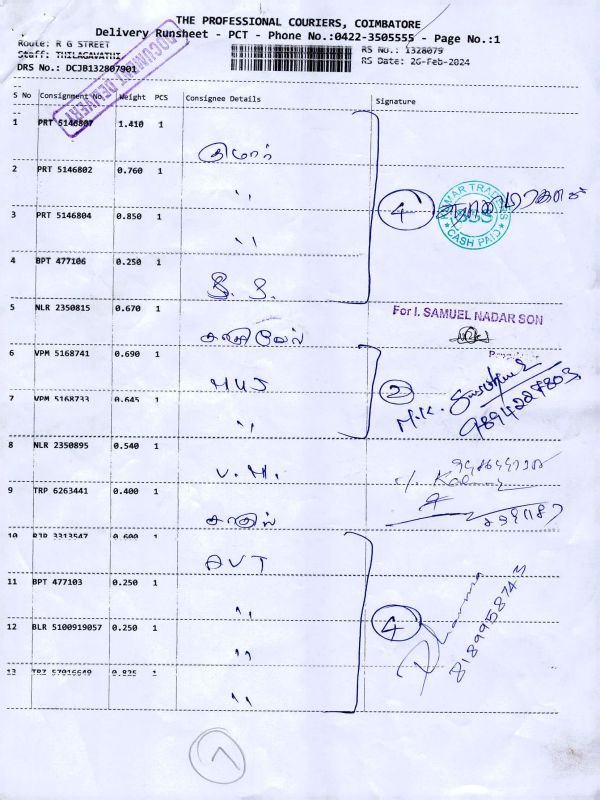 THE PROFESSIONAL COURIERS, COIMBATORE
Delivery Runsheet - PCT - Phone No.:0422-3505555 - Page No.:1
Route: R G STREET RS No.: 1328079
Staff: THILAGAVATHI RS Date: 26-Feb-2024
DRS No.: DCJB132807901
DOCUMENT DELIVERY
S No Consignment No. Weight PCS Consignee Details Signature
1 PRT 5146807 1.410 1
குமார்
2 PRT 5146802 0.760 1
"
3 PRT 5146804 0.850 1
"
4
CASH PAID
4 BPT 477106 0.250 1
S. S.
5 NLR 2350815 0.670 1
For I. SAMUEL NADAR SON
கதிர்வேல்
6 VPM 5168741 0.690 1
MUS
2
M.K.
9894224803
7 VPM 5168733 0.645 1
"
8 NLR 2350895 0.540 1
V. M.
9 TRP 6263441 0.400 1
10 RJP 3313547 0.600 1
AVT
11 BPT 477103 0.250 1
"
4
Dharma
8189958743
12 BLR 5100919057 0.250 1
"
13 TRZ 57016649 0.825 1
"
7